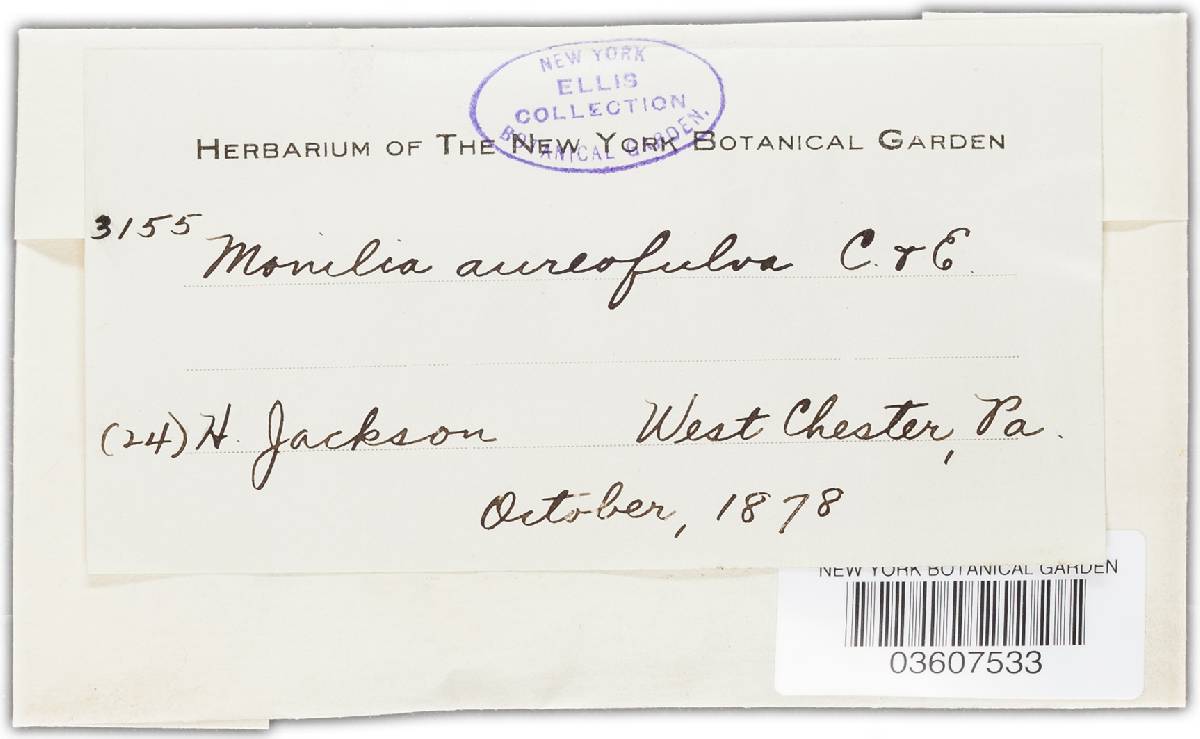 NEW YORK
ELLIS
COLLECTION
BOTANICAL GARDEN.
HERBARIUM OF THE NEW YORK BOTANICAL GARDEN
3155
Monilia aureofulva C. & E.
(24) H. Jackson West Chester, Pa.
October, 1878
NEW YORK BOTANICAL GARDEN
03607533